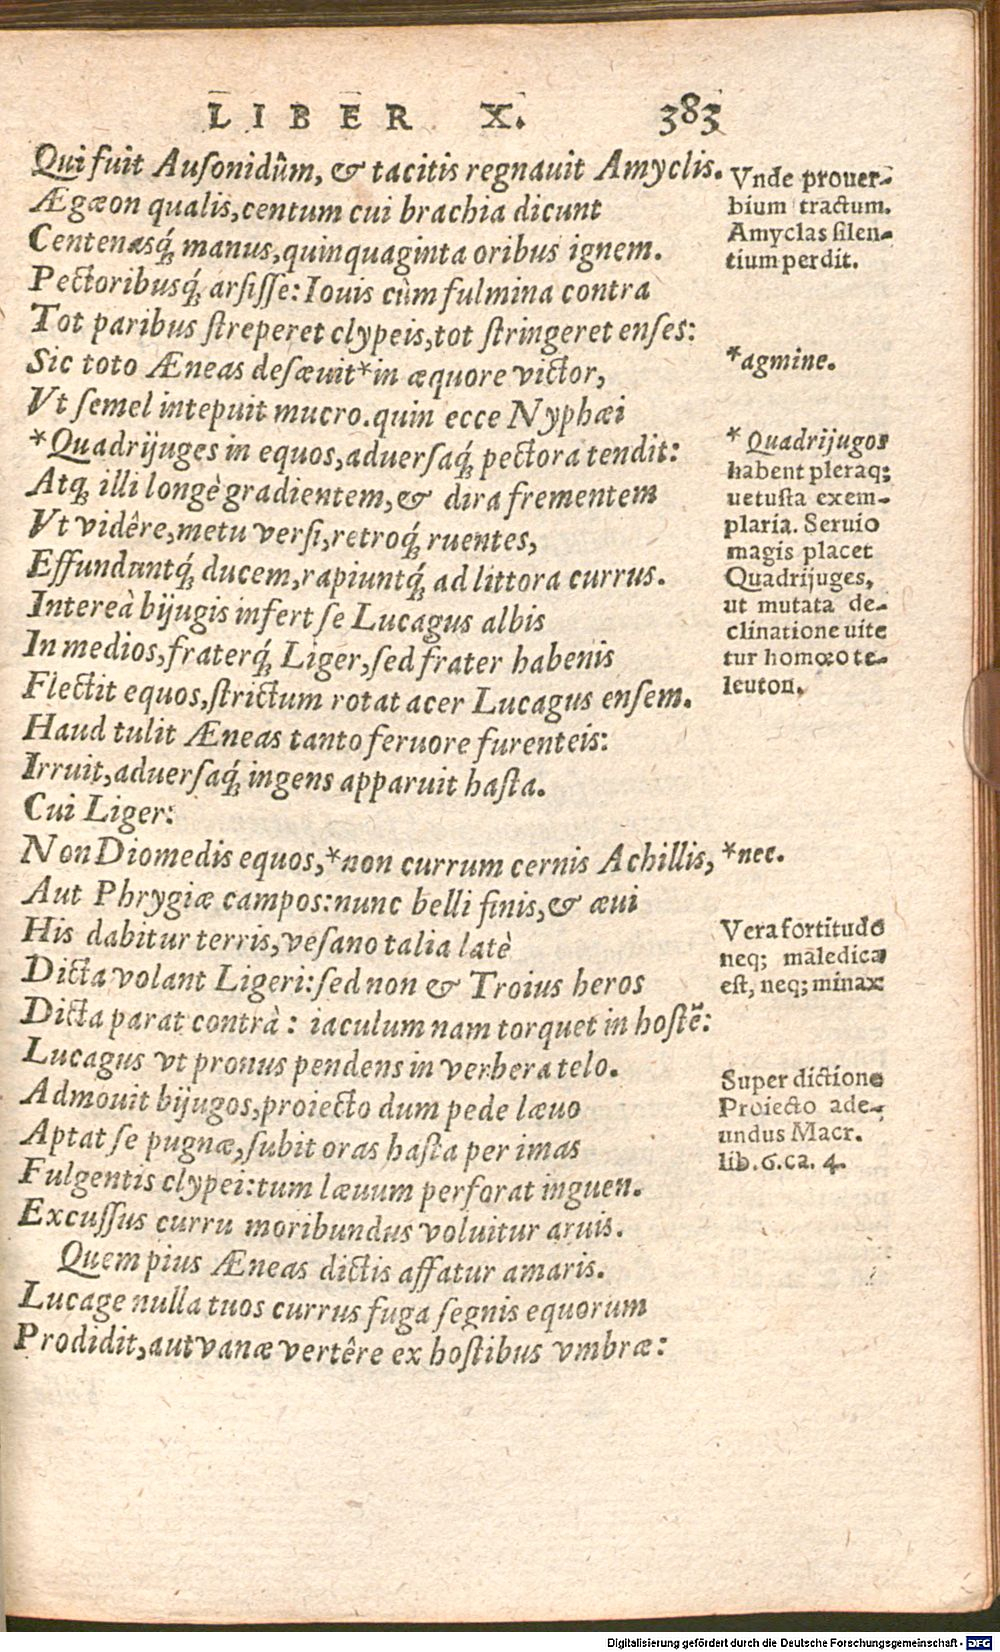 LIBER X. 383
Qui fuit Ausonidûm, & tacitis regnauit Amyclis.
Ægæon qualis, centum cui brachia dicunt
Centenasq́; manus, quinquaginta oribus ignem.
Pectoribusq́; arsisse: Iouis cùm fulmina contra
Tot paribus streperet clypeis, tot stringeret enses:
Sic toto Æneas desæuit*in æquore victor,
Vt semel intepuit mucro. quin ecce Nyphæi
*Quadrijuges in equos, aduersaq́; pectora tendit:
Atq; illi longè gradientem, & dira frementem
Vt vidêre, metu versi, retroq́; ruentes,
Effunduntq́; ducem, rapiuntq́; ad littora currus.
Intereà bijugis infert se Lucagus albis
In medios, fraterq́; Liger, sed frater habenis
Flectit equos, strictum rotat acer Lucagus ensem.
Haud tulit Æneas tanto feruore furenteis:
Irruit, aduersaq́; ingens apparuit hasta.
Cui Liger:
Non Diomedis equos,*non currum cernis Achillis,
Aut Phrygiæ campos: nunc belli finis, & æui
His dabitur terris, vesano talia latè
Dicta volant Ligeri: sed non & Troius heros
Dicta parat contrà: iaculum nam torquet in hostẽ:
Lucagus vt pronus pendens in verbera telo.
Admouit bijugos, proiecto dum pede læuo
Aptat se pugnæ, subit oras hasta per imas
Fulgentis clypei: tum læuum perforat inguen.
Excussus curru moribundus voluitur aruis.
Quem pius Æneas dictis affatur amaris.
Lucage nulla tuos currus fuga segnis equorum
Prodidit, aut vanæ vertêre ex hostibus vmbræ:
Vnde prouer-
bium tractum.
Amyclas silen-
tium perdit.
*agmine.
* Quadrijugos
habent pleraq;
uetusta exem-
plaria. Seruio
magis placet
Quadrijuges,
ut mutata de-
clinatione uite
tur homœote-
leuton.
*nec.
Vera fortitudo
neq; maledica
est, neq; minax
Super dictione
Proiecto ade-
undus Macr.
lib. 6. ca. 4.
Digitalisierung gefördert durch die Deutsche Forschungsgemeinschaft - DFG